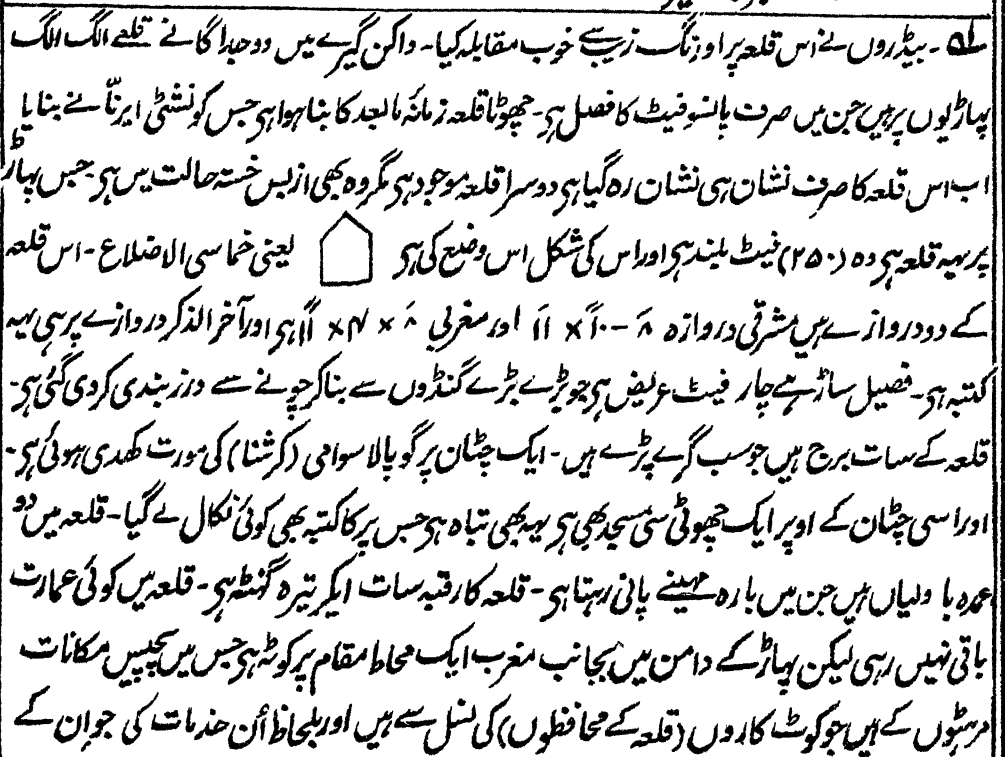 ۵۱؎ ۔ بیڈروں نے اس قلعہ پر اورنگ زیب سے خوب مقابلہ کیا۔ واکن گیرے میں دو جداگانے قلعے الگ الگ
پہاڑیوں پر ہیں جن میں صرف پانسو فیٹ کا فصل ہی۔ چھوٹا قلعہ زمانۂ مابعد کا بنا ہوا ہی جس کو نشٹی ایرنّا نے بنایا تھا
اب اس قلعہ کا صرف نشان ہی نشان رہ گیا ہی دوسرا قلعہ موجود ہی مگر وہ بھی ازبس خستہ حالت میں ہی جس پہاڑ
پر یہہ قلعہ ہی وہ (۲۵۰) فیٹ بلند ہی اور اس کی شکل اس وضع کی ہی یعنی خماسی الاضلاع۔ اس قلعہ
کے دو دروازے ہیں مشرقی دروازہ اور مغربی ہی اور آخر الذکر دروازے پر ہی یہہ
کتبہ ہی۔ فصیل ساڑھے چار فیٹ عریض ہی جو بڑے بڑے گنڈوں سے بنا کر چونے سے درز بندی کر دی گئی ہی۔
قلعہ کے سات برج ہیں جو سب گرے پڑے ہیں۔ ایک چٹان پر گوپالا سوامی (کرشنا) کی مورت کھدی ہوئی ہی۔
اور اسی چٹان کے اوپر ایک چھوٹی سی مسجد بھی ہی یہہ بھی تباہ ہی جس پر کا کتبہ بھی کوئی نکال لے گیا۔ قلعہ میں دو
عمدہ باولیاں ہیں جن میں بارہ مہینے پانی رہتا ہی۔ قلعہ کا رقبہ سات ایکر تیرہ گنٹہ ہی۔ قلعہ میں کوئی عمارت
باقی نہیں رہی لیکن پہاڑ کے دامن میں بجانب مغرب ایک محاط مقام پر کوٹہ ہی جس میں پچیس مکانات
مرہٹوں کے ہیں جو کوٹ کاروں (قلعہ کے محافظوں) کی نسل سے ہیں اور بلحاظ اُن خدمات کی جو ان کے